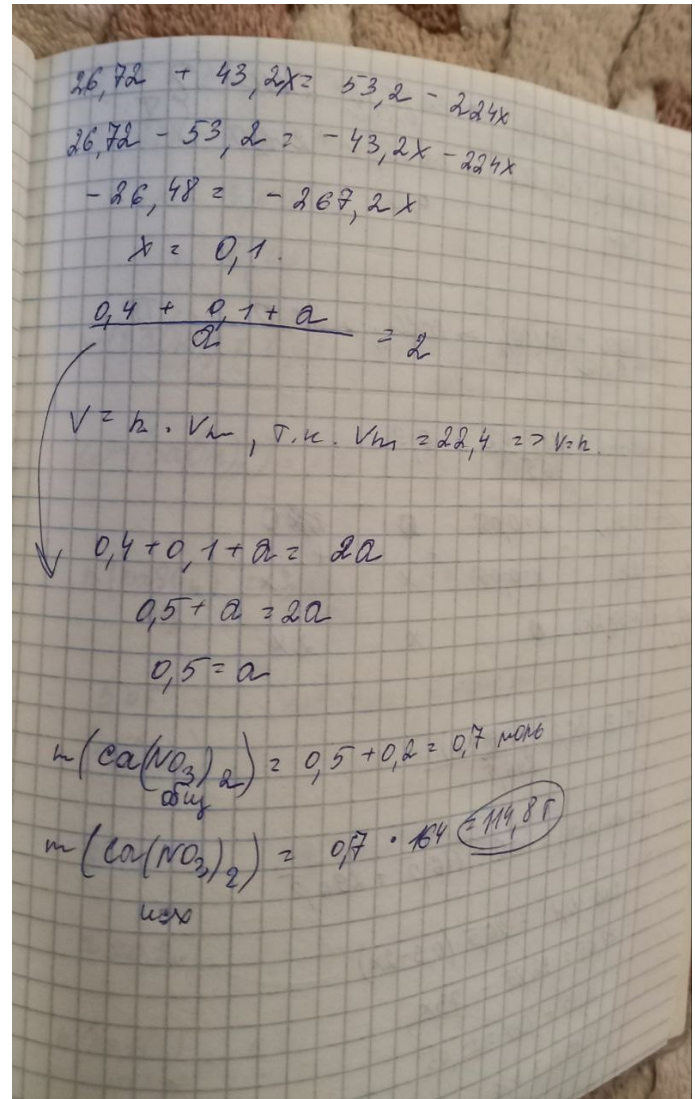 26,72 + 43,2x = 53,2 - 224x
26,72 - 53,2 = -43,2x - 224x
-26,48 = -267,2x
x = 0,1.
0,4 + 0,1 + a
a
= 2
V = n · Vm, т.к. Vm = 22,4 => V=n.
0,4 + 0,1 + a = 2a
0,5 + a = 2a
0,5 = a
n(Ca(NO3)2) = 0,5 + 0,2 = 0,7 моль
общ
m(Ca(NO3)2) = 0,7 · 164 = 114,8 г
исх